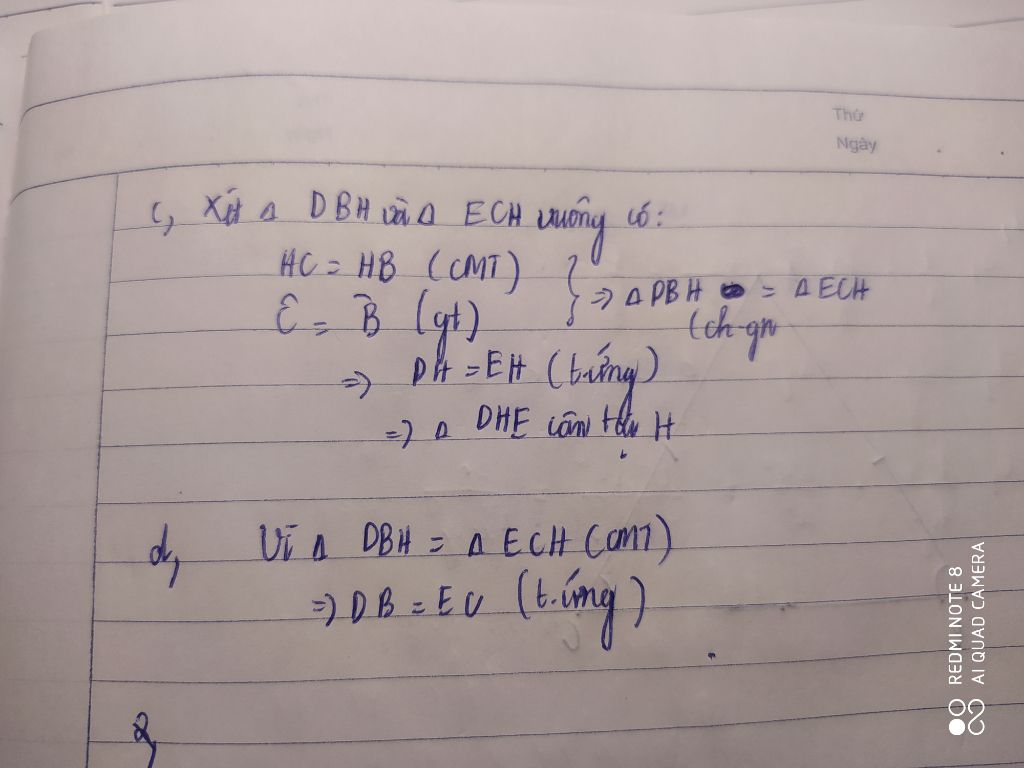 Thứ
Ngày
c, Xét Δ DBH và Δ ECH vuông có:
HC = HB (CMT)
Ĉ = B̂ (gt)
} => Δ DBH = Δ ECH
(ch-gn
=> DH = EH (t.ứng)
=> Δ DHE cân tại H
d, Vì Δ DBH = Δ ECH (CMT)
=> DB = EC (t.ứng)
2,
REDMI NOTE 8
AI QUAD CAMERA